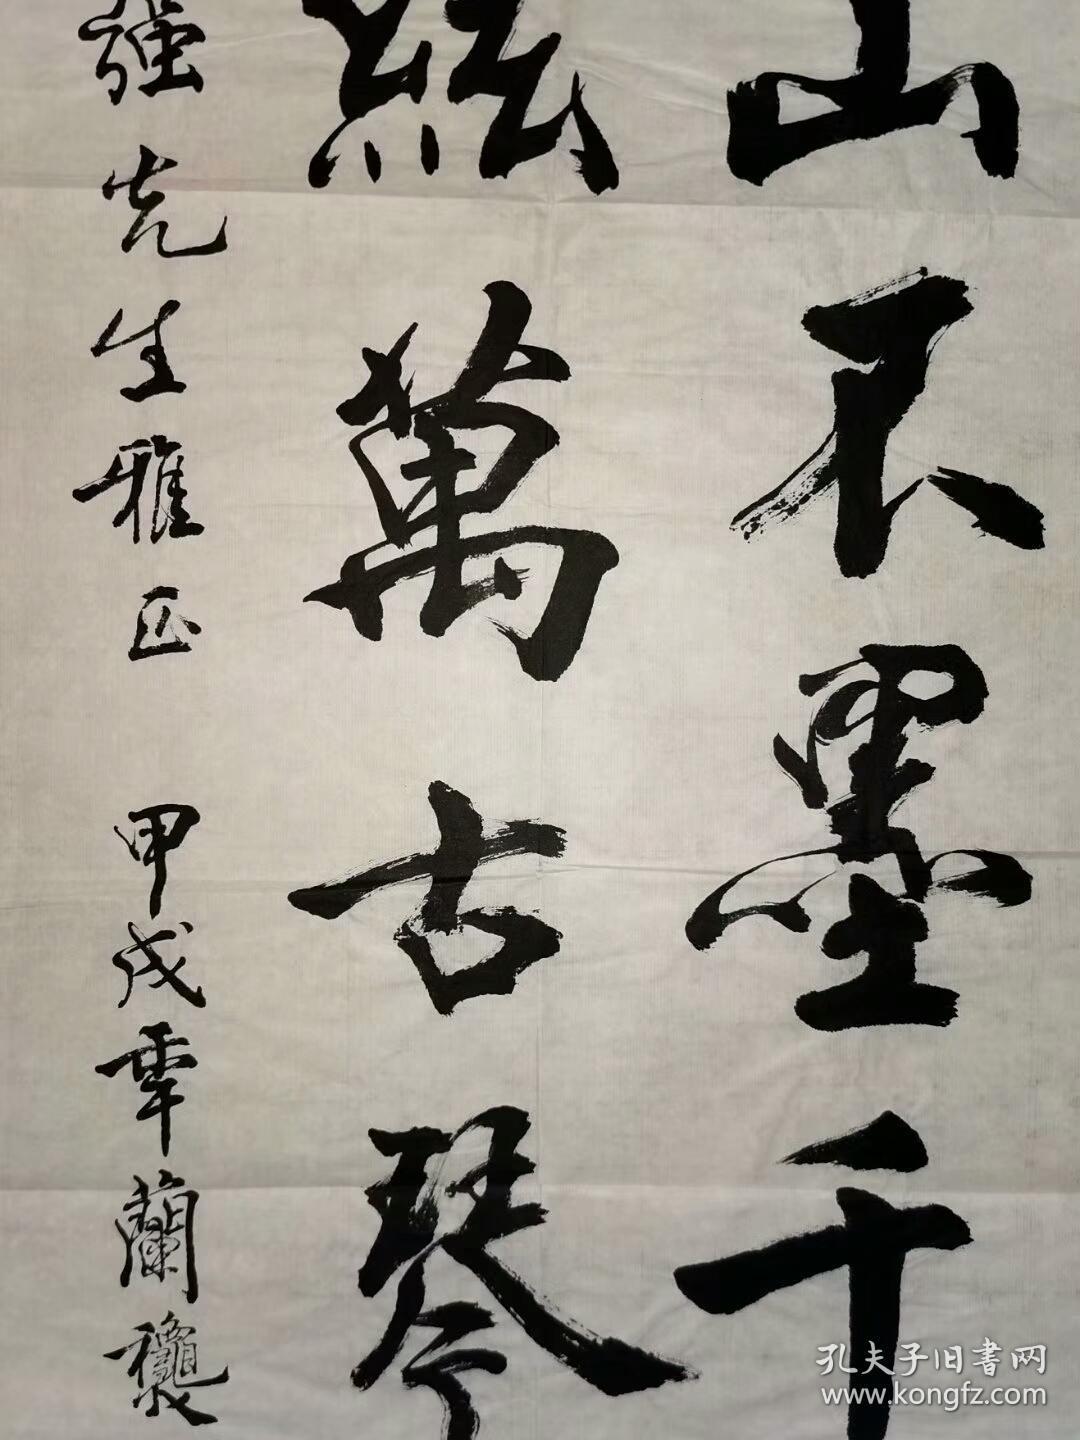 山不墨千
絃萬古琴
强先生雅正 甲戌辜蘭
孔夫子旧書网
www.kongfz.com